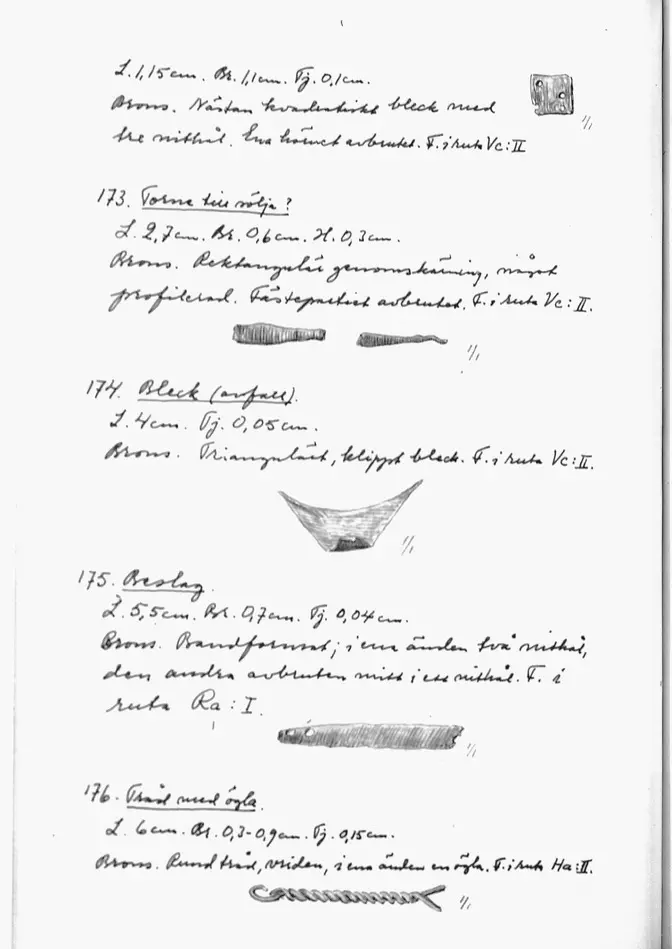 L. 1,15 cm. Br. 1,1 cm. Tj. 0,1 cm.
Brons. Nästan kvadratiskt bleck med
tre nithål. Ena hörnet avbrutet. F. i ruta Vc:II
1/1
173. Torne till sölja?
L. 2,7 cm. Br. 0,6 cm. H. 0,3 cm.
Brons. Rektangulär genomskärning, något
profilerad. Fästepartiet avbrutet. F. i ruta Vc:II.
1/1
174. Bleck (avfall).
L. 4 cm. Tj. 0,05 cm.
Brons. Triangulärt, klippt bleck. F. i ruta Vc:II.
1/1
175. Beslag.
L. 5,5 cm. Br. 0,7 cm. Tj. 0,04 cm.
Brons. Bandformat; i ena änden två nithål,
den andra avbruten mitt i ett nithål. F. i
ruta Ra:I.
1/1
176. Tråd med ögla.
L. 6 cm. Br. 0,3-0,9 cm. Tj. 0,15 cm.
Brons. Rund tråd, vriden, i ena änden en ögla. F. i ruta Ha:II.
1/1